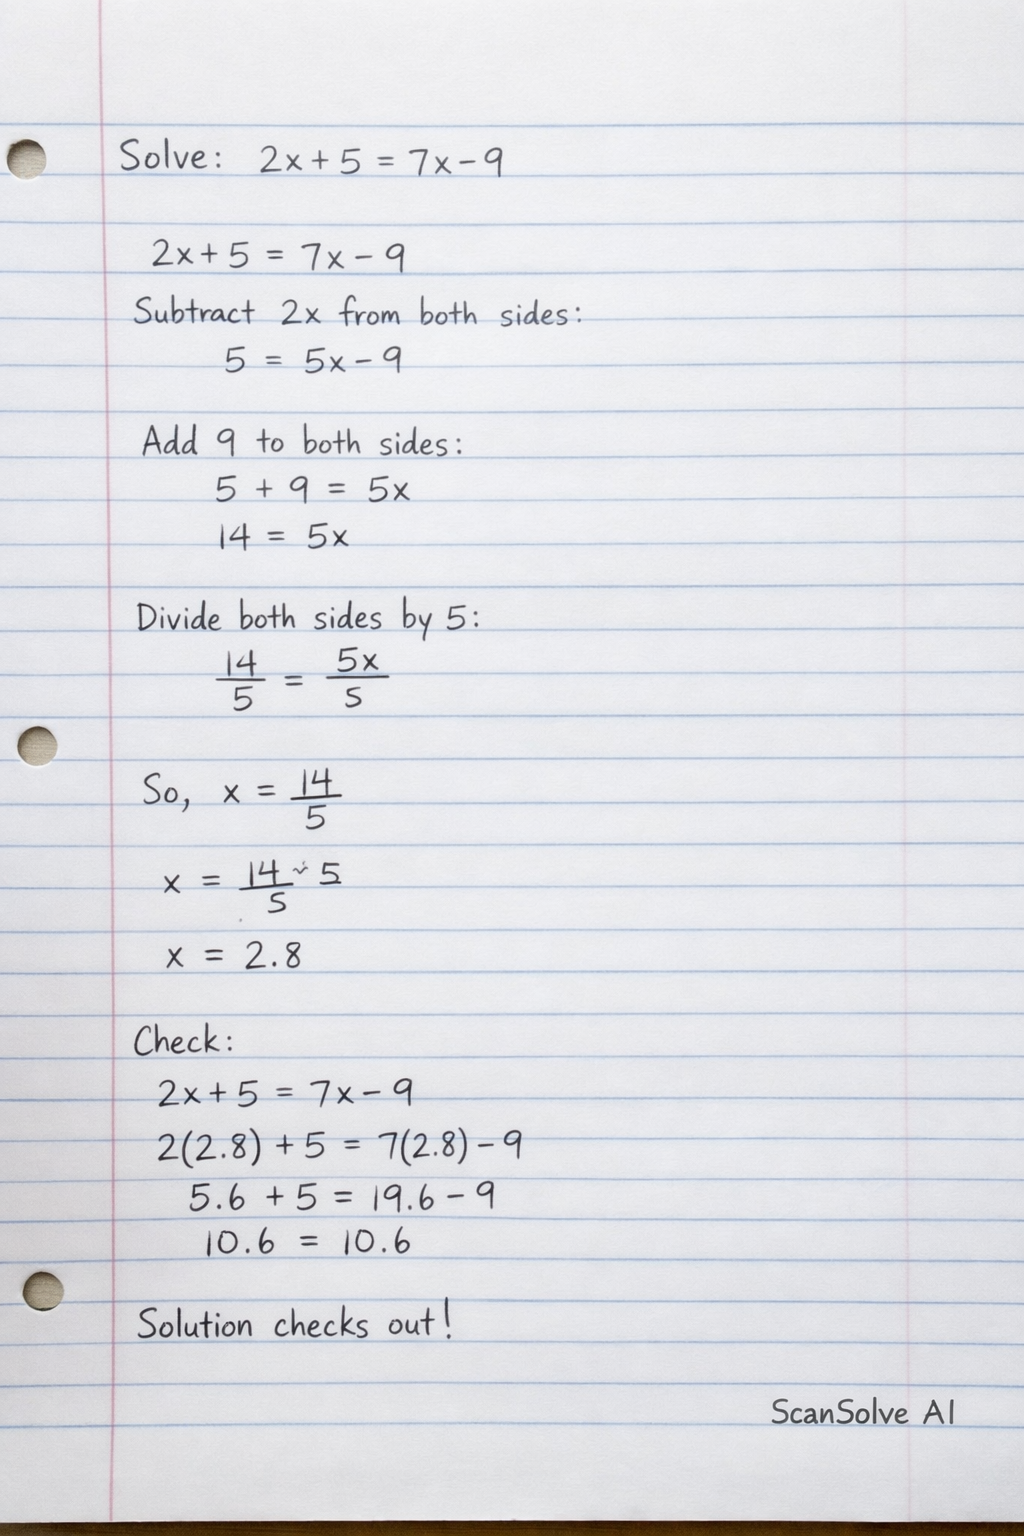 Solve: 2x + 5 = 7x - 9
2x + 5 = 7x - 9
Subtract 2x from both sides:
5 = 5x - 9
Add 9 to both sides:
5 + 9 = 5x
14 = 5x
Divide both sides by 5:
14/5 = 5x/5
So, x = 14/5
x = 14/5 5
x = 2.8
Check:
2x + 5 = 7x - 9
2(2.8) + 5 = 7(2.8) - 9
5.6 + 5 = 19.6 - 9
10.6 = 10.6
Solution checks out!
ScanSolve AI